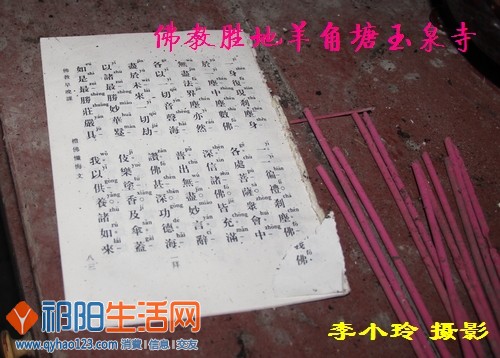 佛教胜地羊角塘玉泉寺
身復現剎塵身 一一徧禮剎塵佛
於一塵中塵數佛 各處菩薩眾會中
無盡法界塵亦然 深信諸佛皆充滿
各以一切音聲海 普出無盡妙言辭
盡於未來一切劫 讚佛甚深功德海
以諸最勝妙華鬘 伎樂塗香及傘蓋
如是最勝莊嚴具 我以供養諸如來
佛教早晚課 禮佛懺悔文
祁阳生活网
www.qyhao123.com 消費 信息 交友
李小玲 摄影